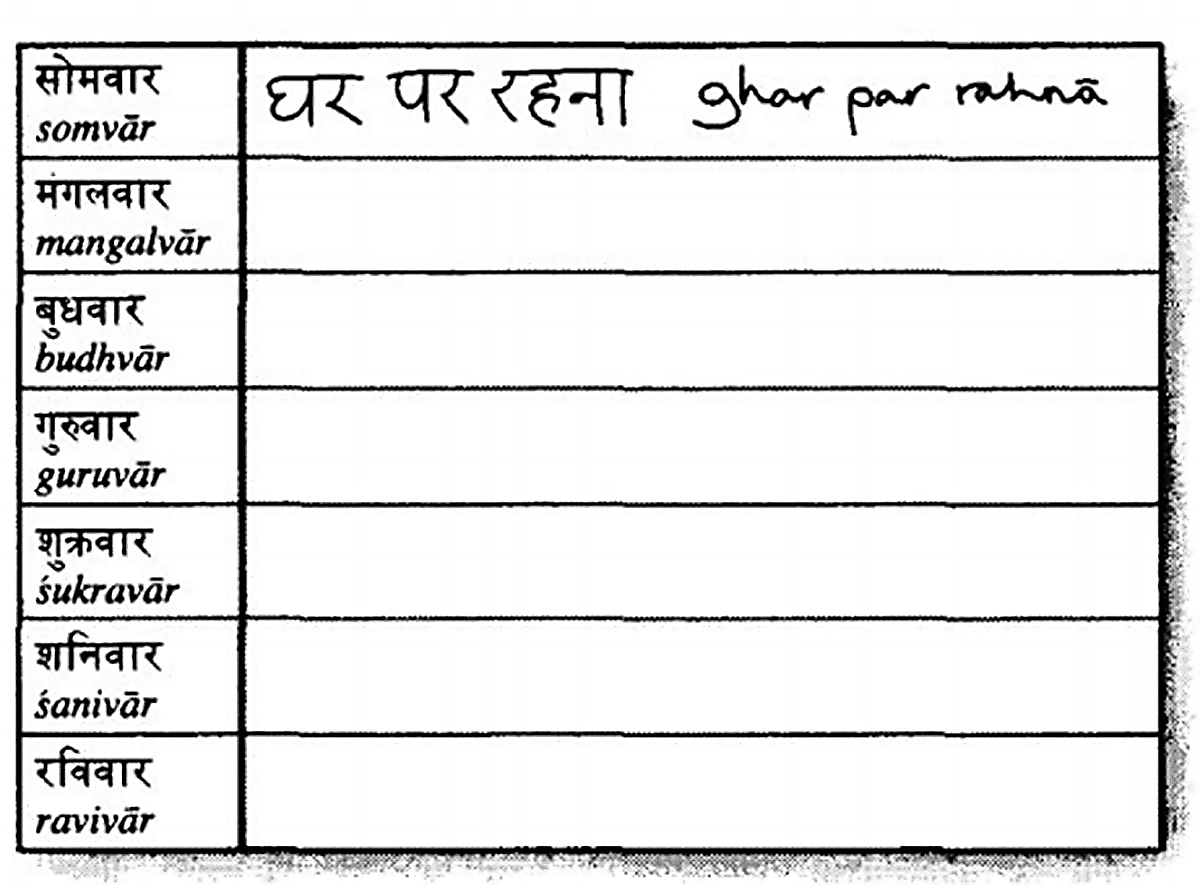 सोमवार
somvār
घर पर रहना ghar par rahnā
मंगलवार
mangalvār
बुधवार
budhvār
गुरुवार
guruvār
शुक्रवार
śukravār
शनिवार
śanivār
रविवार
ravivār